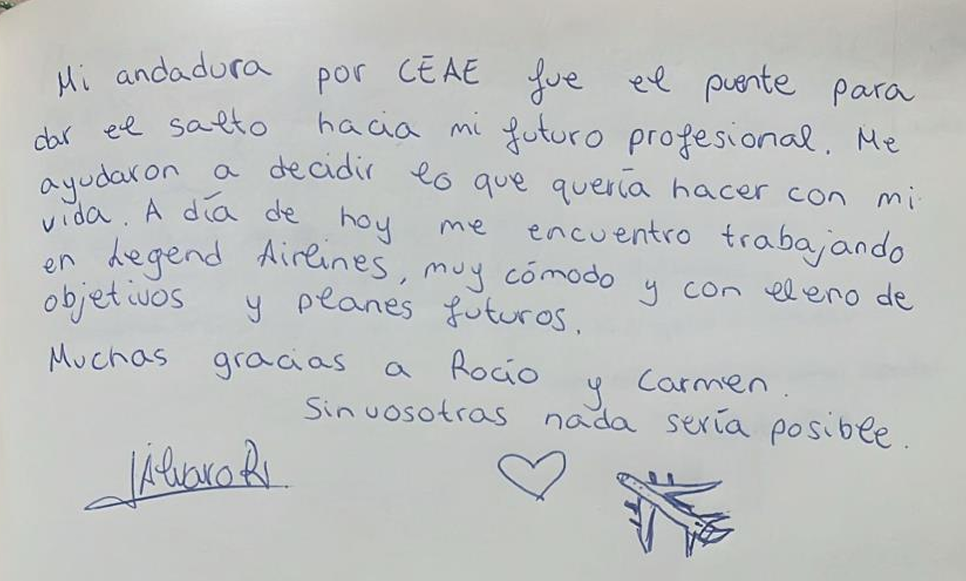 Mi andadura por CEAE fue el puente para
dar el salto hacia mi futuro profesional. Me
ayudaron a decidir lo que quería hacer con mi
vida. A día de hoy me encuentro trabajando
en Legend Airlines, muy cómodo y con lleno de
objetivos y planes futuros.
Muchas gracias a Rocío y Carmen.
Sin vosotras nada sería posible.
Álvaro R